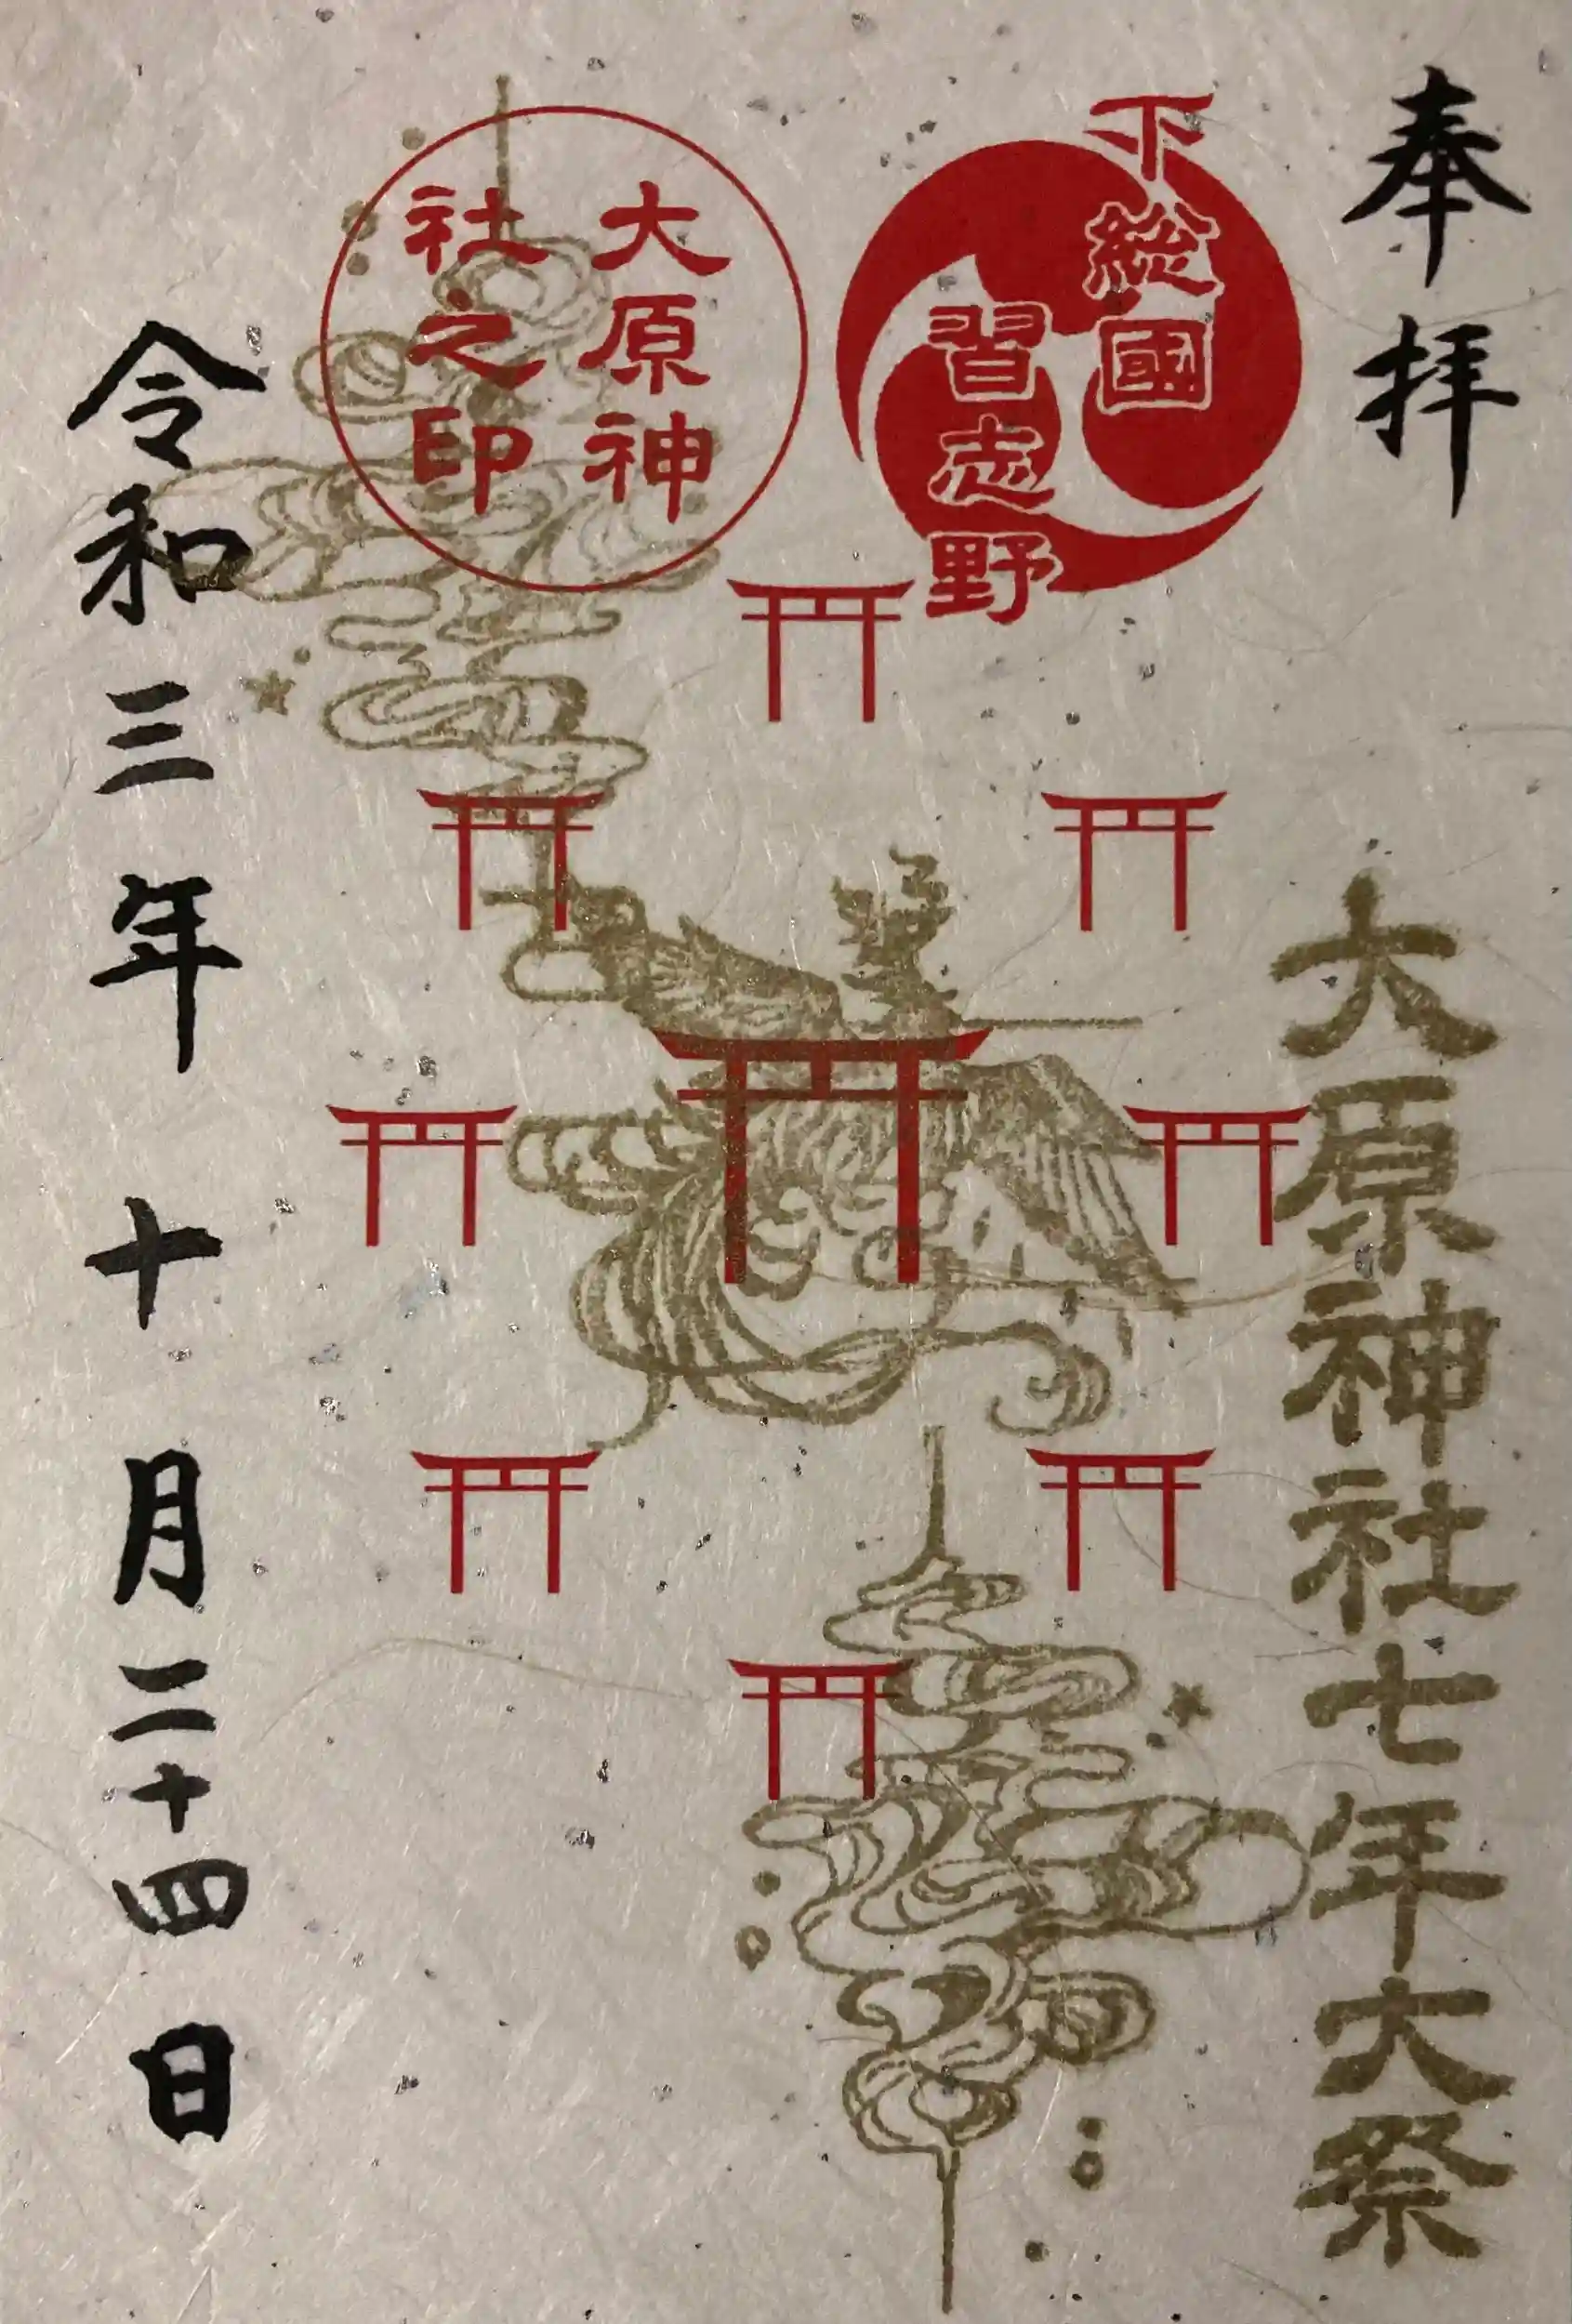 奉拝
下総國
習志野
大原神
社之印
大原神社七年大祭
令和三年十月二十四日